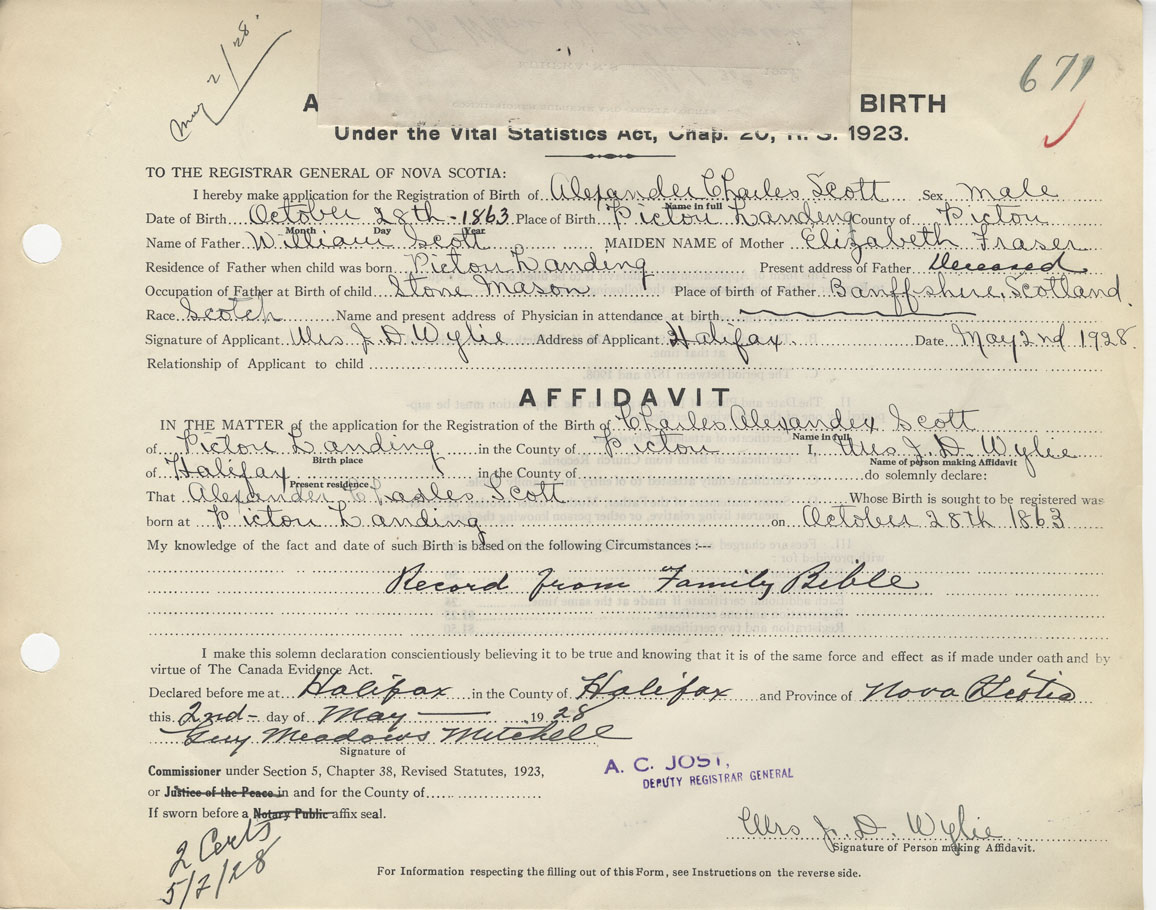 May 2/28.
671
A BIRTH
Under the Vital Statistics Act, Chap. 20, R. S. 1923.
TO THE REGISTRAR GENERAL OF NOVA SCOTIA:
I hereby make application for the Registration of Birth of Alexander Charles Scott Sex male
Name in full
Date of Birth October 28th - 1863 Place of Birth Pictou Landing County of Pictou
Month Day Year
Name of Father William Scott MAIDEN NAME of Mother Elizabeth Fraser
Residence of Father when child was born Pictou Landing Present address of Father Deceased
Occupation of Father at Birth of child Stone Mason Place of birth of Father Banffshire, Scotland.
Race Scotch Name and present address of Physician in attendance at birth
Signature of Applicant Mrs J. D. Wylie Address of Applicant Halifax Date May 2nd 1928.
Relationship of Applicant to child
AFFIDAVIT
IN THE MATTER of the application for the Registration of the Birth of Charles Alexander Scott
Name in full
of Pictou Landing in the County of Pictou I, Mrs J. D. Wylie
Birth place Name of person making Affidavit
of Halifax in the County of do solemnly declare:
Present residence
That Alexander Charles Scott Whose Birth is sought to be registered was
born at Pictou Landing on October 28th 1863
My knowledge of the fact and date of such Birth is based on the following Circumstances :---
Record from Family Bible
I make this solemn declaration conscientiously believing it to be true and knowing that it is of the same force and effect as if made under oath and by
virtue of The Canada Evidence Act.
Declared before me at Halifax in the County of Halifax and Province of Nova Scotia
this 2nd - day of May 19 28
Guy Meadows Mitchell
Signature of
Commissioner under Section 5, Chapter 38, Revised Statutes, 1923,
or Justice of the Peace in and for the County of
If sworn before a Notary Public affix seal.
A. C. JOST,
DEPUTY REGISTRAR GENERAL
Mrs J. D. Wylie
Signature of Person making Affidavit.
2 Certs
5/2/28
For Information respecting the filling out of this Form, see Instructions on the reverse side.